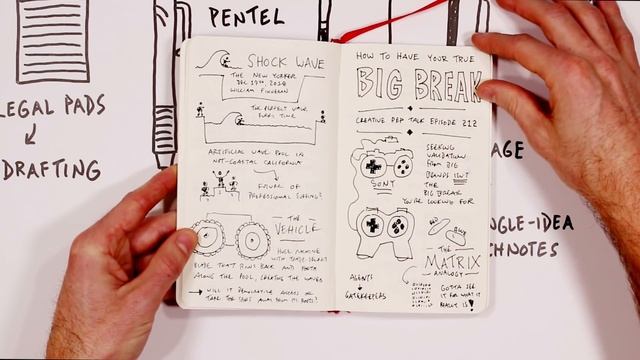 PENTEL
LEGAL PADS
DRAFTING
SHOCK WAVE
THE NEW YORKER
DEC 17TH, 2018
WILLIAM FINNEGAN
THE PERFECT WAVE
EVERY TIME
ARTIFICIAL WAVE POOL IN
NOT-COASTAL CALIFORNIA
FUTURE OF
PROFESSIONAL SURFING?
THE
VEHICLE
HUGE MACHINE
WITH
BLADE THAT RUNS BACK AND FORTH
ALONG THE POOL, CREATING THE WAVES
WILL IT DEMOCRATIZE ACCESS OR
TAKE THE SPORT AWAY FROM ITS ROOTS?
HOW TO HAVE YOUR TRUE
BIG BREAK
CREATIVE PEP TALK EPISODE 212
SEEKING
VALIDATION
FROM BIG
BRANDS ISN'T
THE
BIG BREAK
YOU'RE LOOKING FOR
SONY
THE
MATRIX
ANALOGY
AGENTS
GATEKEEPERS
GOTTA SEE
IT FOR WHAT IT
REALLY IS!
AGE
NGLE-IDEA
CHNOTES